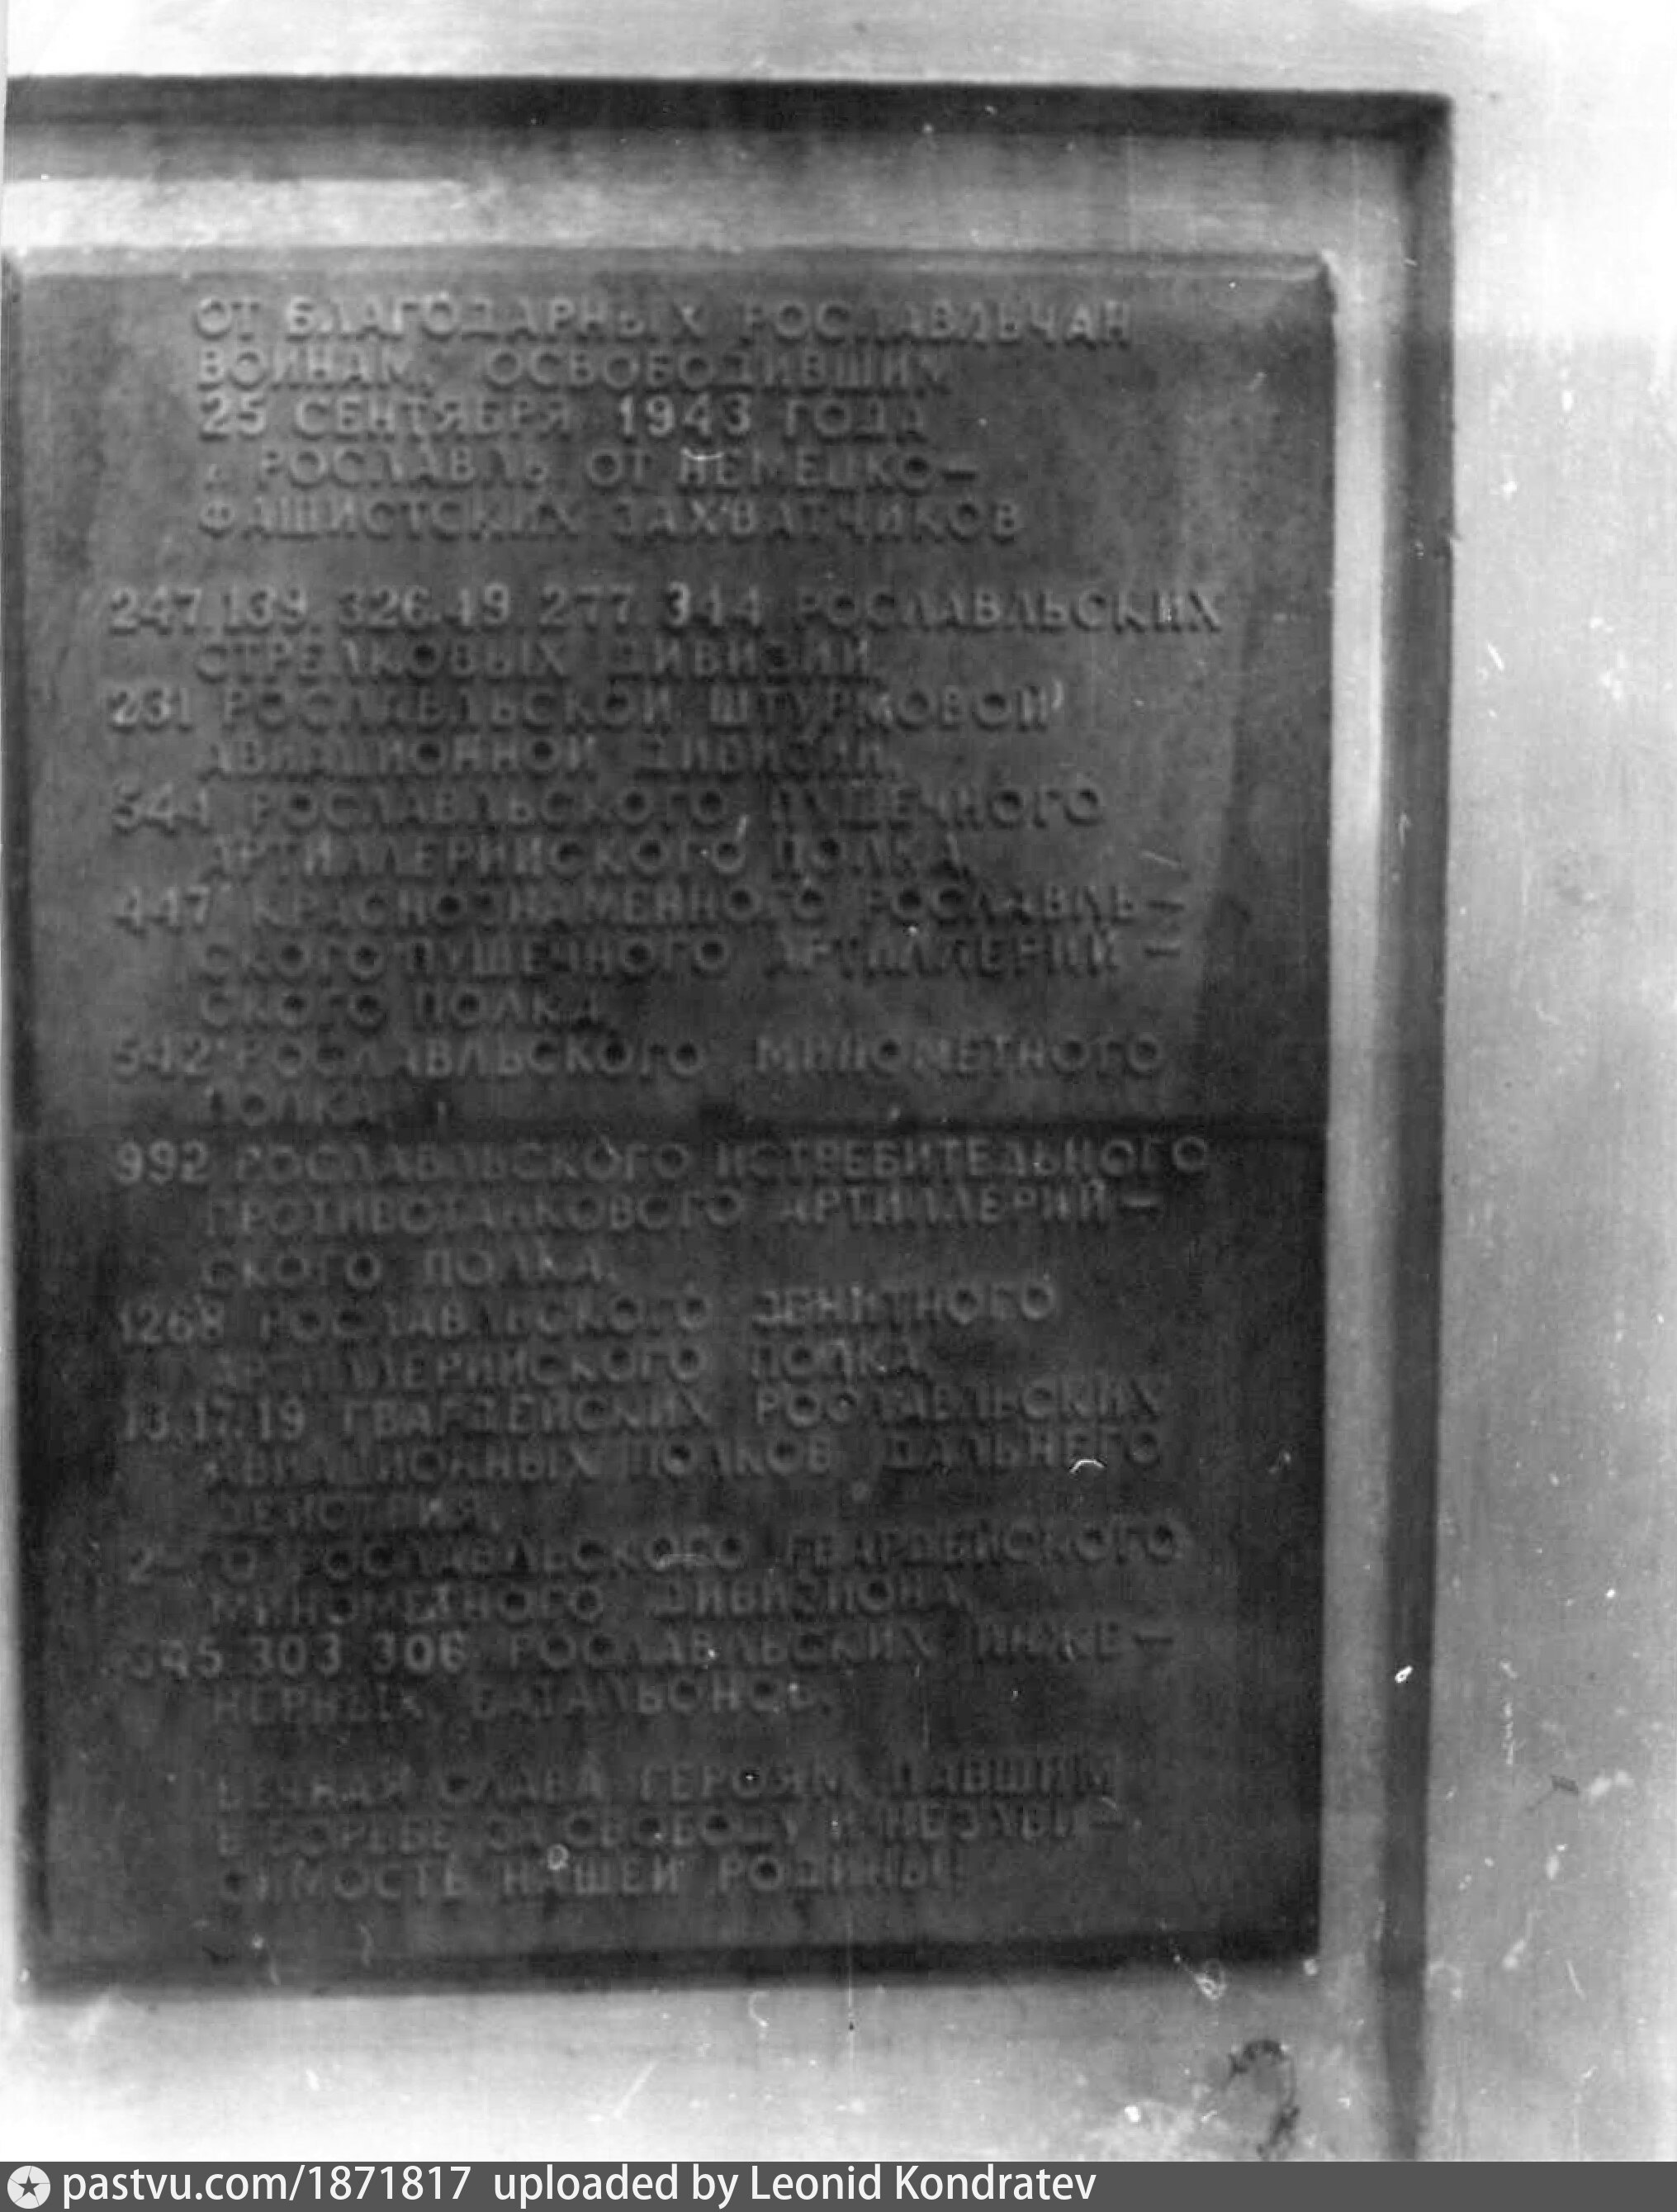 ОТ БЛАГОДАРНЫХ РОСЛАВЛЬЧАН
ВОИНАМ, ОСВОБОДИВШИМ
25 СЕНТЯБРЯ 1943 ГОДА
г. РОСЛАВЛЬ ОТ НЕМЕЦКО-
ФАШИСТСКИХ ЗАХВАТЧИКОВ
247. 139. 326. 49. 277. 344 РОСЛАВЛЬСКИХ
СТРЕЛКОВЫХ ДИВИЗИЙ,
231 РОСЛАВЛЬСКОЙ ШТУРМОВОЙ
АВИАЦИОННОЙ ДИВИЗИИ,
544 РОСЛАВЛЬСКОГО ПУШЕЧНОГО
АРТИЛЛЕРИЙСКОГО ПОЛКА,
447 КРАСНОЗНАМЕННОГО РОСЛАВЛЬ-
СКОГО ПУШЕЧНОГО АРТИЛЛЕРИЙ-
СКОГО ПОЛКА,
542 РОСЛАВЛЬСКОГО МИНОМЕТНОГО
ПОЛКА,
992 РОСЛАВЛЬСКОГО ИСТРЕБИТЕЛЬНОГО
ПРОТИВОТАНКОВОГО АРТИЛЛЕРИЙ-
СКОГО ПОЛКА,
1268 РОСЛАВЛЬСКОГО ЗЕНИТНОГО
АРТИЛЛЕРИЙСКОГО ПОЛКА,
13. 17. 19 ГВАРДЕЙСКИХ РОСЛАВЛЬСКИХ
АВИАЦИОННЫХ ПОЛКОВ ДАЛЬНЕГО
ДЕЙСТВИЯ,
2-ГО РОСЛАВЛЬСКОГО ГВАРДЕЙСКОГО
МИНОМЕТНОГО ДИВИЗИОНА,
303 306 РОСЛАВЛЬСКИХ ИНЖЕ-
НЕРНЫХ БАТАЛЬОНОВ.
ВЕЧНАЯ СЛАВА ГЕРОЯМ, ПАВШИМ
В БОРЬБЕ ЗА СВОБОДУ И НЕЗАВИ-
СИМОСТЬ НАШЕЙ РОДИНЫ!
pastvu.com/1871817 uploaded by Leonid Kondratev